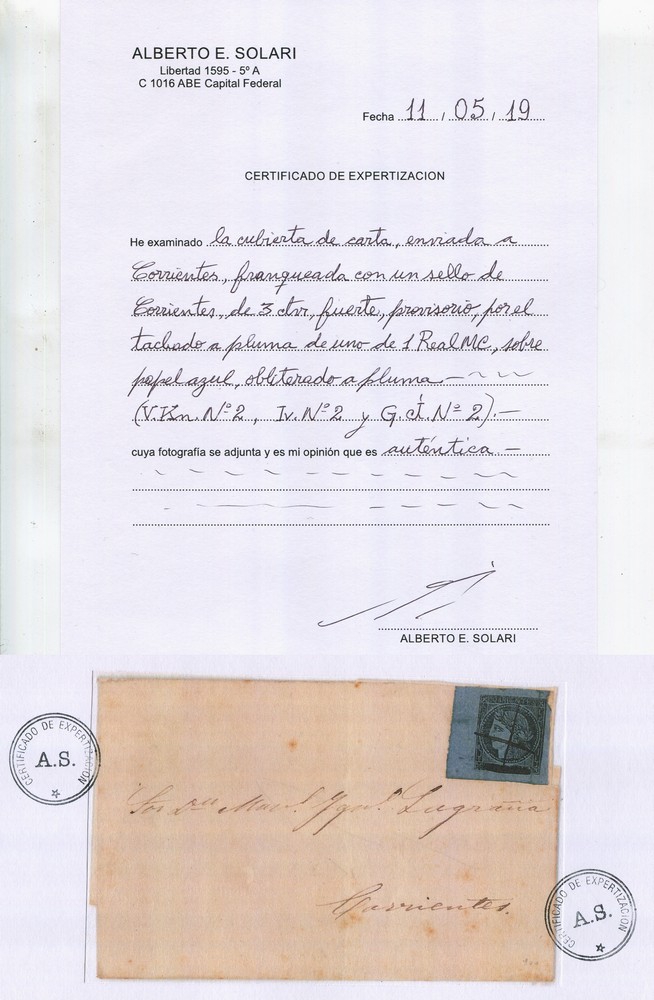 ALBERTO E. SOLARI
Libertad 1595 - 5º A
C 1016 ABE Capital Federal
Fecha 11 / 05 / 19
CERTIFICADO DE EXPERTIZACION
He examinado la cubierta de carta, enviada a
Corrientes, franqueada con un sello de
Corrientes, de 3 ctvs, fuerte, provisorio, por el
tachado a pluma de uno de 1 Real MC, sobre
papel azul, obliterado a pluma.-
(V.Kn. Nº 2, Iv. Nº 2 y G.ct. Nº 2).-
cuya fotografía se adjunta y es mi opinión que es auténtica.-
ALBERTO E. SOLARI
CERTIFICADO DE EXPERTIZACION
A.S.
CORRIENTES
Sor Dn Manl Lagraña
Corrientes.
CERTIFICADO DE EXPERTIZACION
A.S.